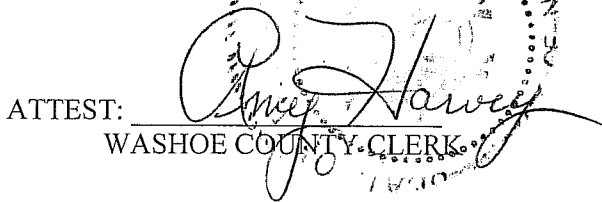 ATTEST: Amy Harvey
WASHOE COUNTY CLERK